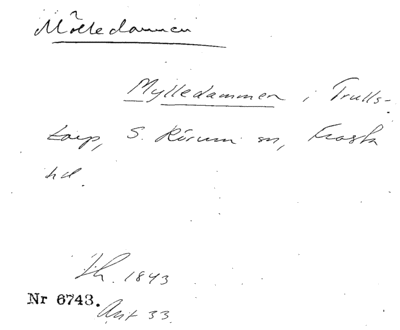 Mölledammen
Mylledammen i Trulls-
torp, S. Rörum sn, Frosta
hd.
Th. 1843
Nr 6743.
Ant 33